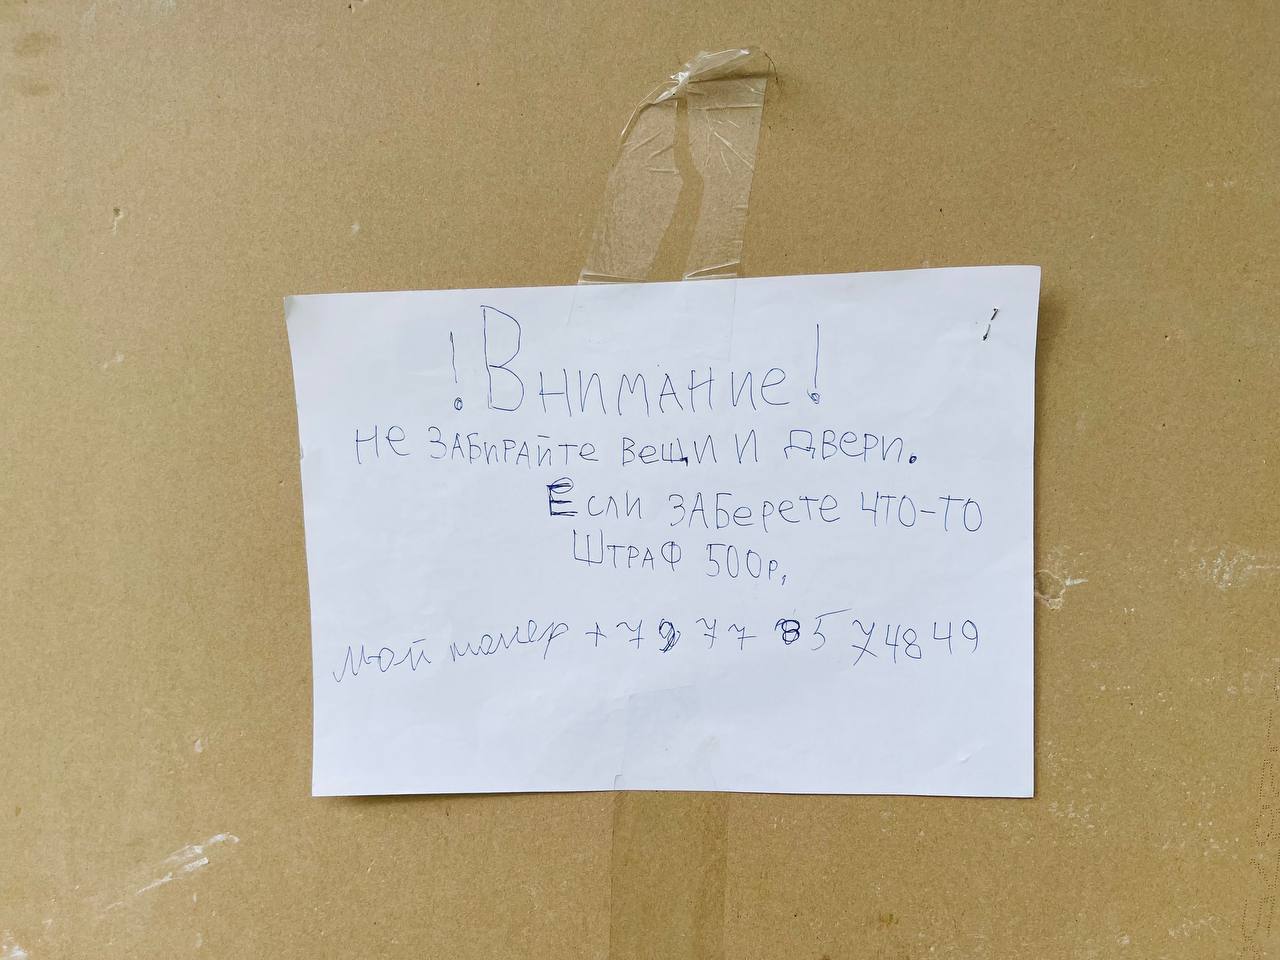 ! Внимание!
не забирайте вещи и двери.
Если заберете что-то
Штраф 500р,
мой номер +7 977 85 74849